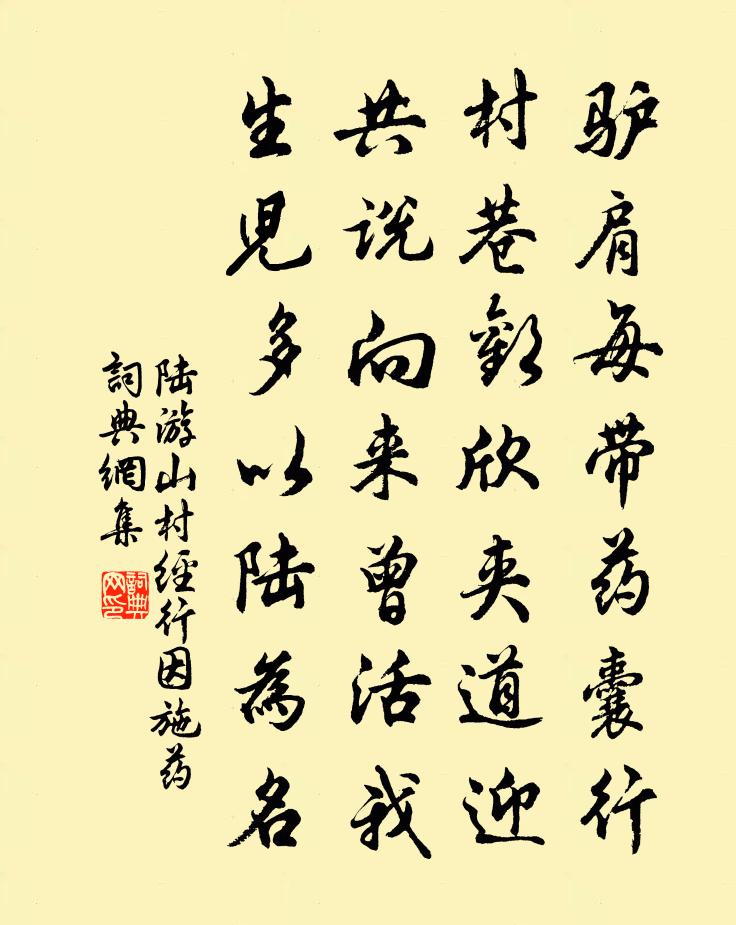 驴肩每带药囊行
村巷歡欣夹道迎
共说向来曾活我
生児多以陆為名
陆游山村經行因施药
詞典網集
詞典網印